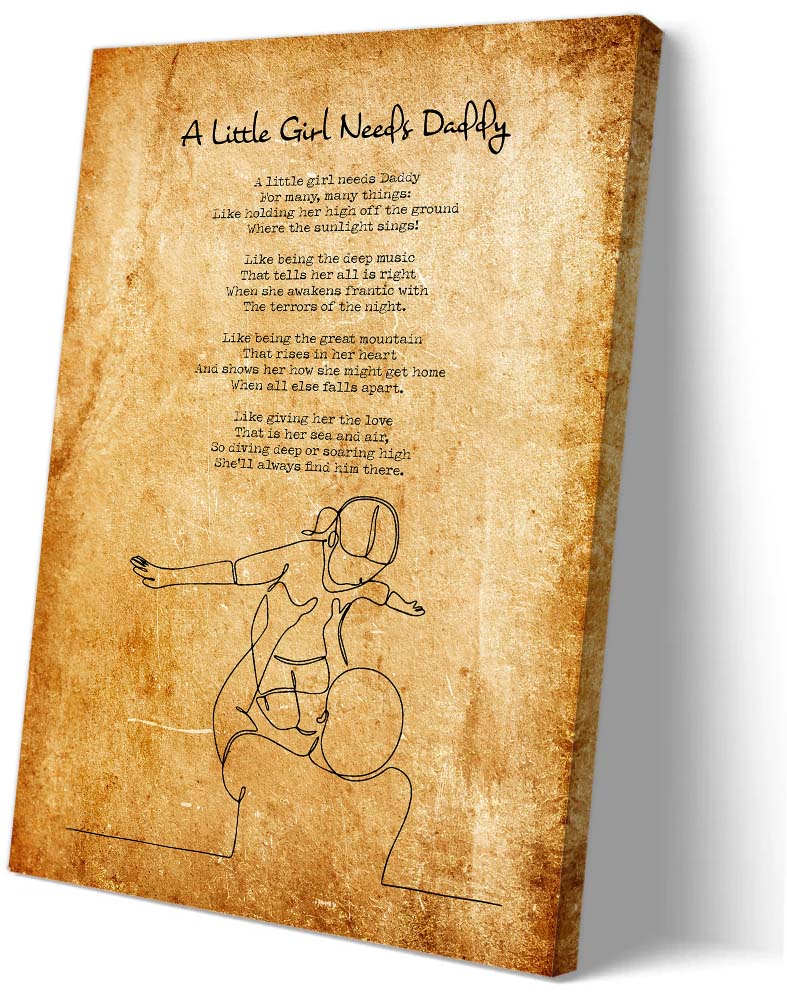 A Little Girl Needs Daddy
A little girl needs Daddy
For many, many things:
Like holding her high off the ground
Where the sunlight sings!
Like being the deep music
That tells her all is right
When she awakens frantic with
The terrors of the night.
Like being the great mountain
That rises in her heart
And shows her how she might get home
When all else falls apart.
Like giving her the love
That is her sea and air,
So diving deep or soaring high
She'll always find him there.